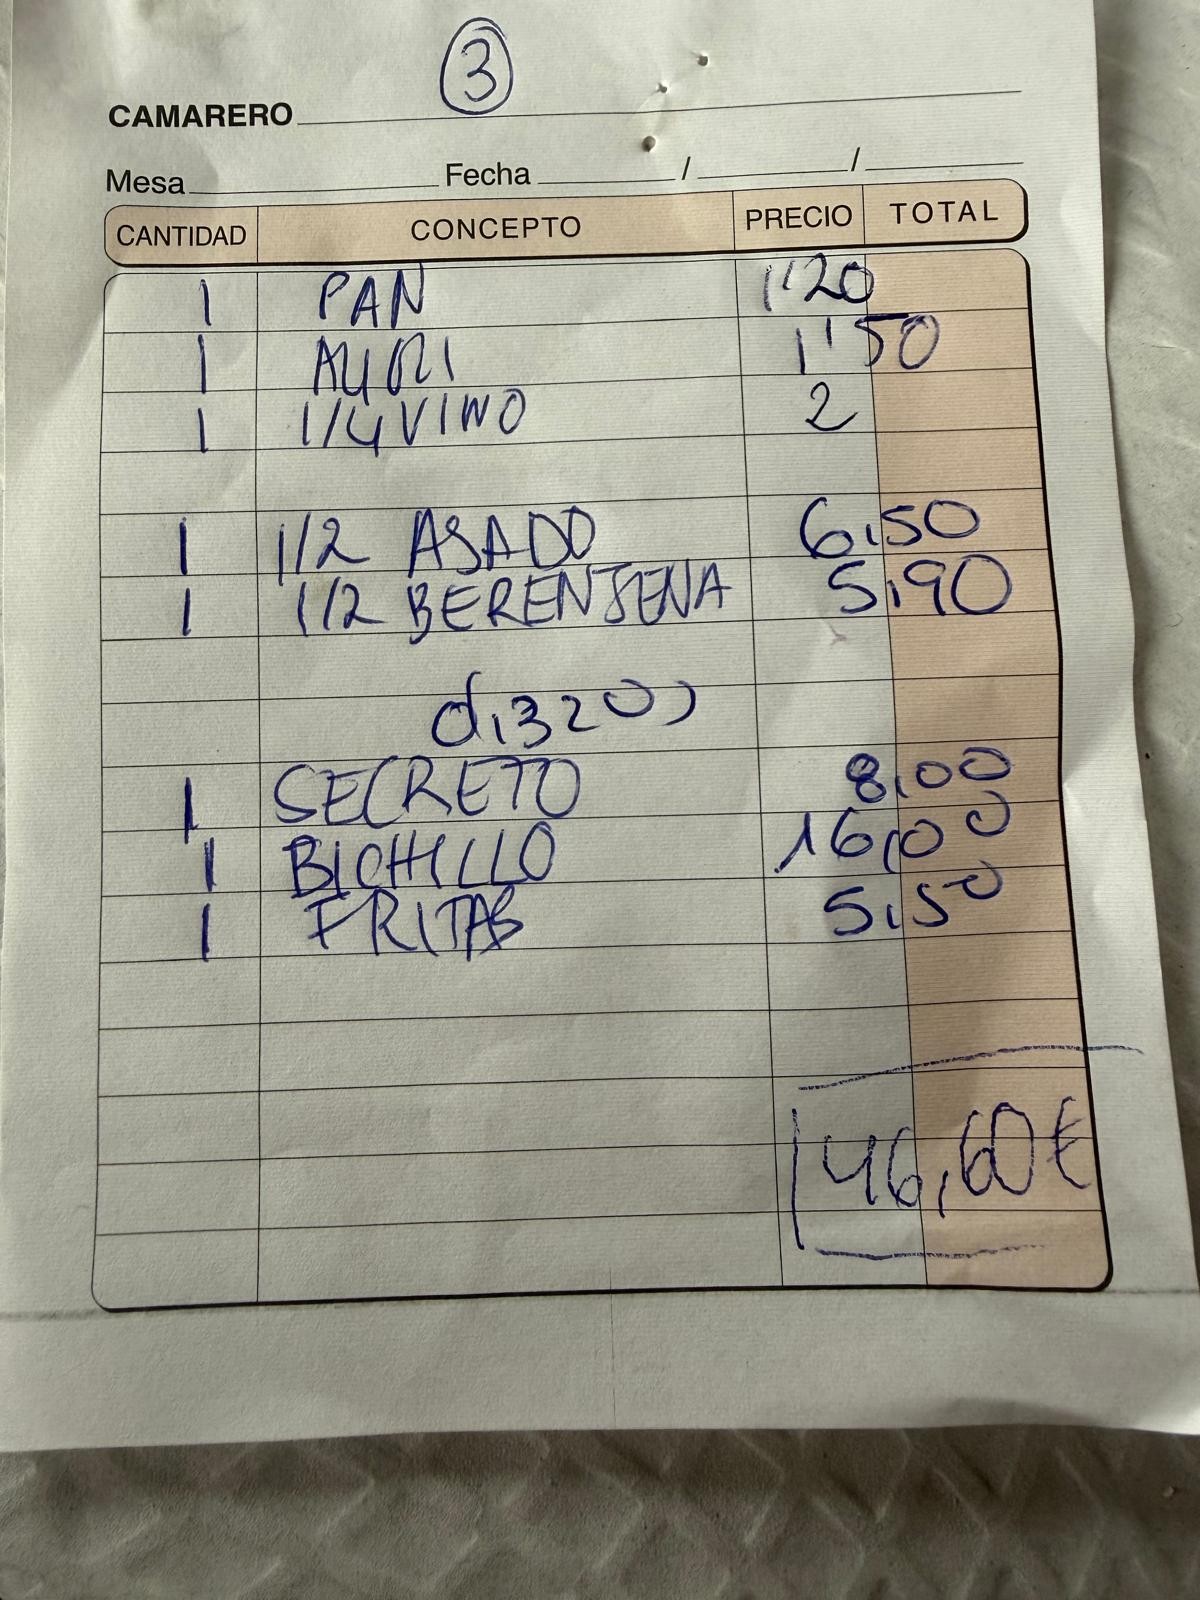 3
CAMARERO
Mesa Fecha / /
CANTIDAD CONCEPTO PRECIO TOTAL
1 PAN 1'20
1 1'50
1 1/4 VINO 2
1 1/2 ASADO 6,50
1 1/2 BERENJENA 5,90
1 SECRETO 8,00
1 BICHILLO 16,00
1 FRITAS 5,50
46,60€